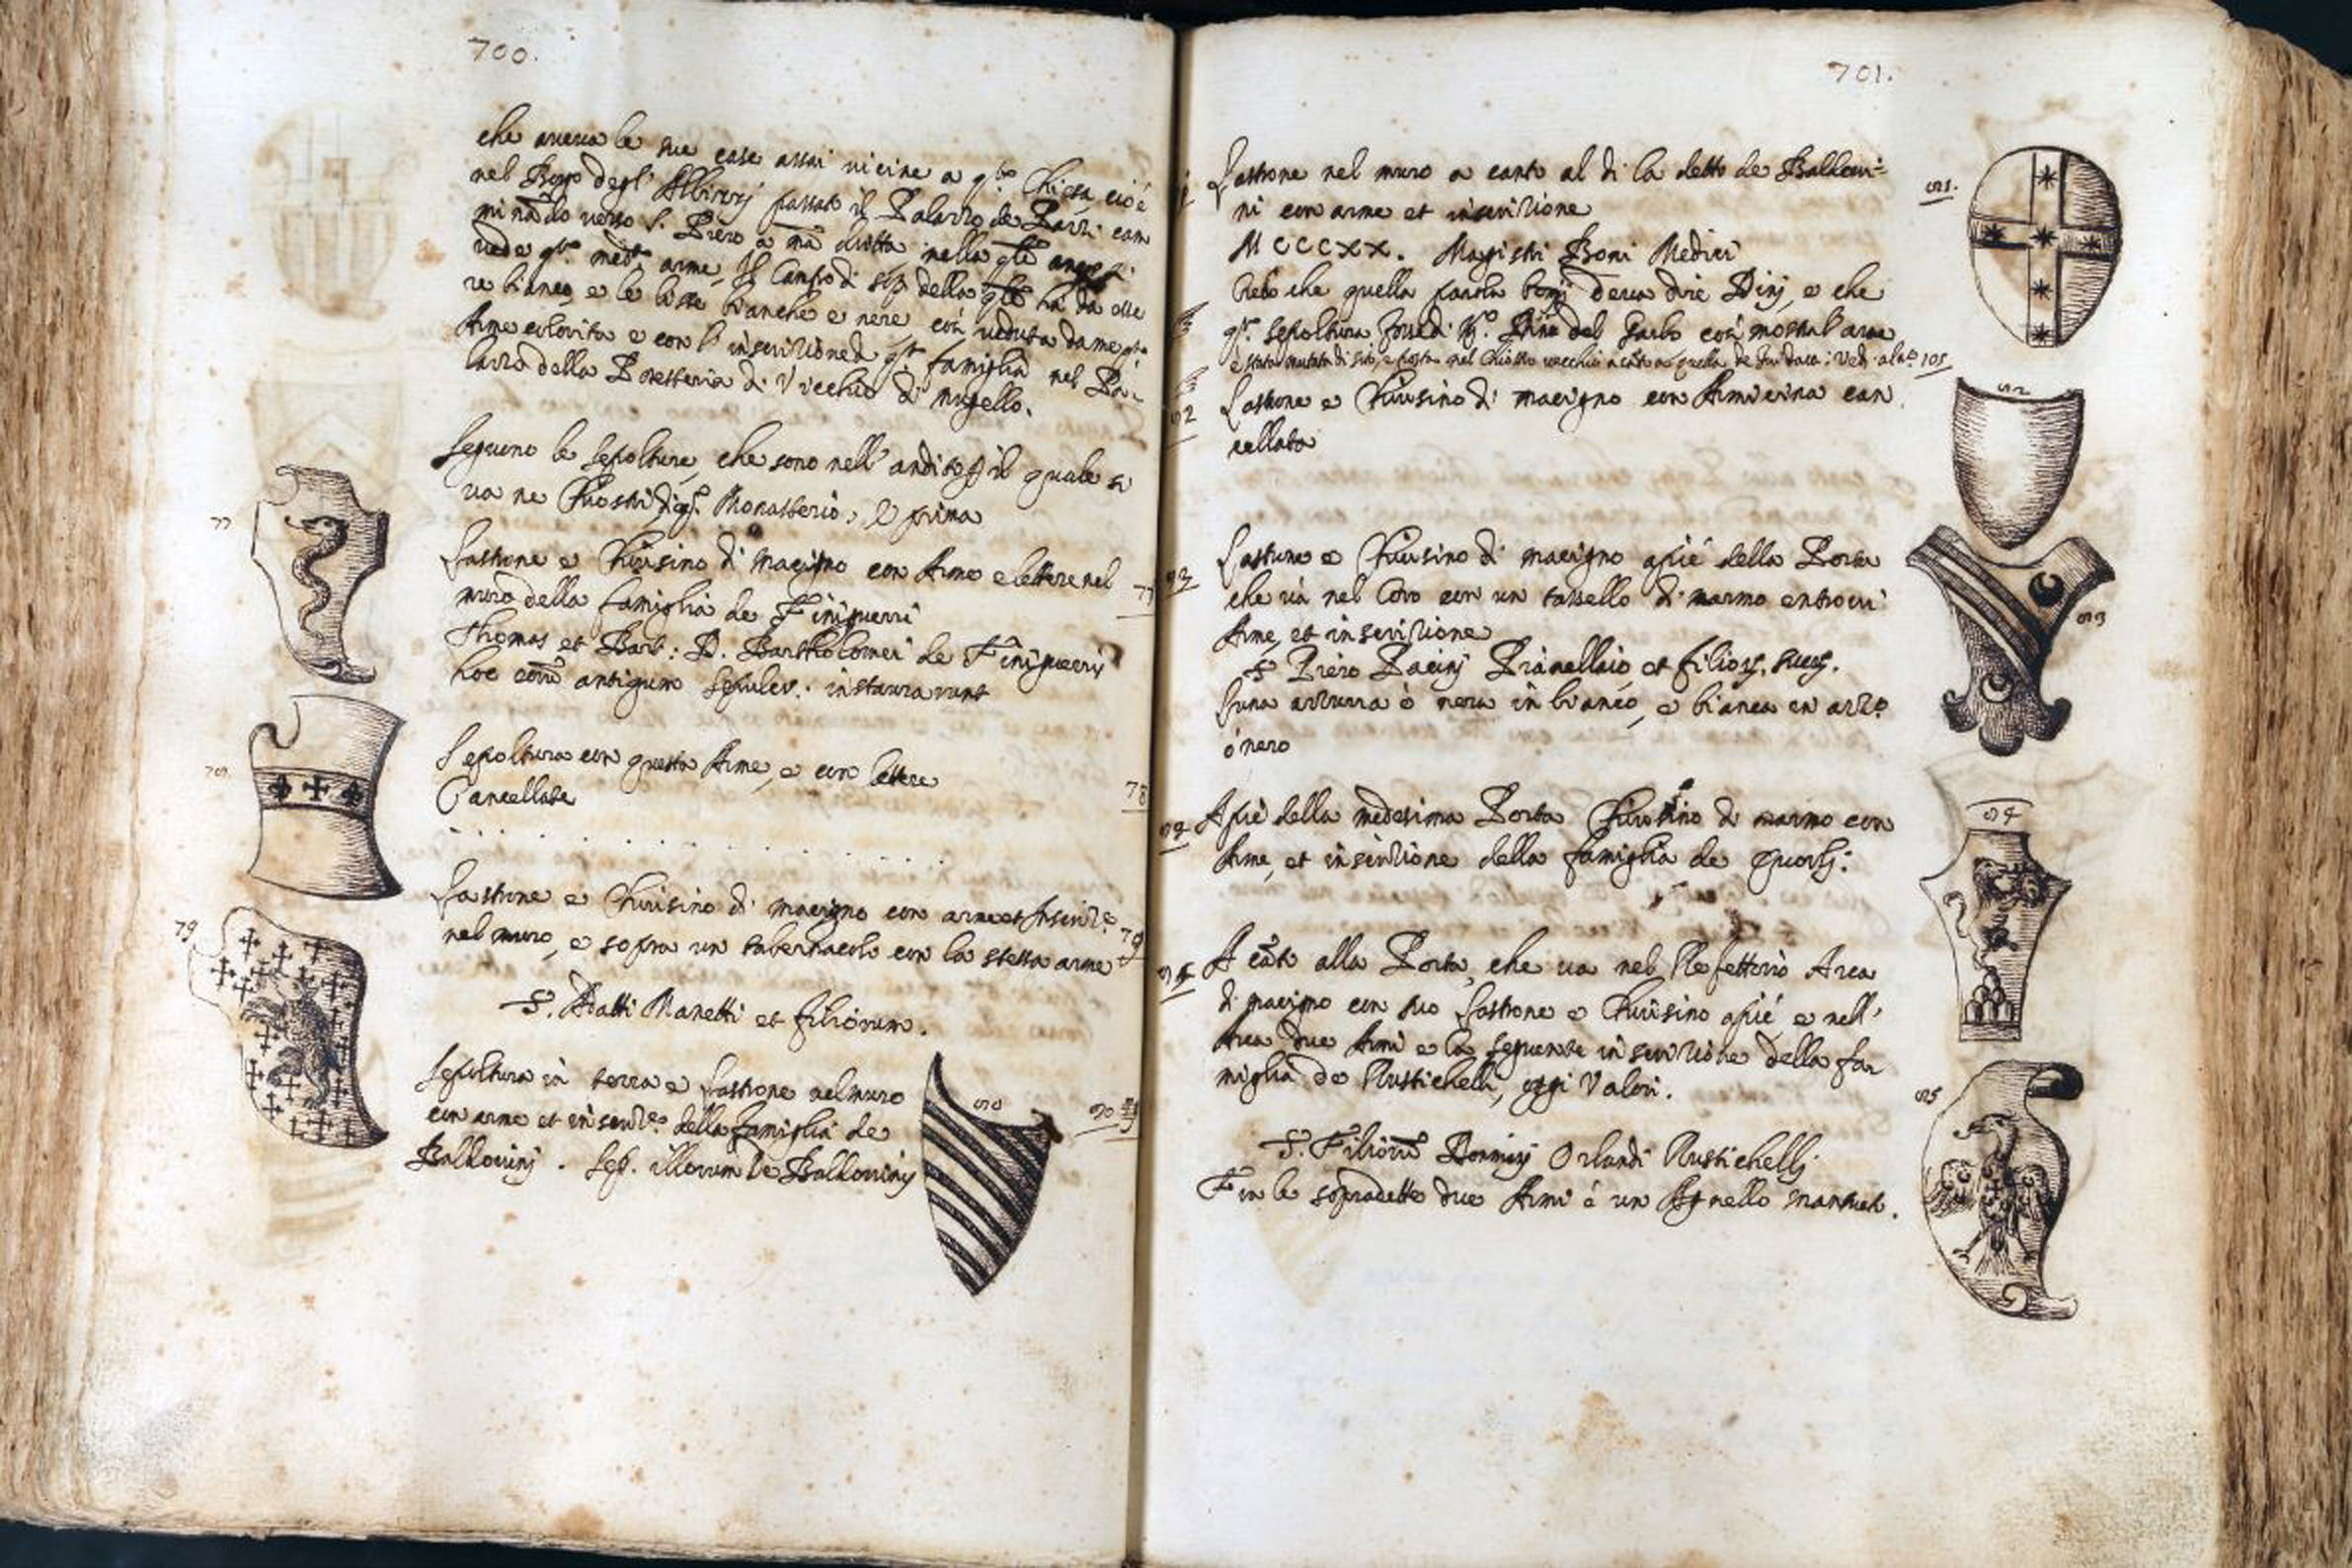 700.
che aveva le sue case assai vicine a q.ta Chiesa, cioè
nel Borgo degl' Albizzi passato il Palazzo de Pazzi cam
minādo verso S. Piero a mā diritta nella q̄le
vede q.ta med.a arme, Il Campo di sop.a della q̄le ha da esse
re bianco, e le liste bianche e nere, così veduta da me
Arme colorita e con l' inscrizione di q.ta famiglia nel Pa:
lazzo della Potesteria di Vicchio di Mugello.
Seguono le sepolture, che sono nell' andito p il quale si
va ne Chiostri di q.to Monasterio, e prima
77
Lastrone e Chiusino di macigno con Arme e lettere nel
muro della famiglia de Finiguerri
77
Thomas et Bart: D. Bartholomei de Finiguerris
hoc eorū antiquum sepulcr. instaurarunt
78
Sepoltura con questa Arme, e con lettere
Cancellate
78
79
Lastrone e Chiusino di macigno con arme et Inscriz.e
nel muro, e sopra un tabernacolo con la stessa arme
79
S. Matti Manetti et filiorum.
Sepoltura in terra e Lastrone nel muro
con arme et inscriz.e della famiglia de
Baldovini. Sep. illorum de Baldovinis
80
80
701.
Lastrone nel muro a canto al di la detto de Baldovi=
ni con arme et inscrizione
81.
MCCCXX. Magistri Boni Medici
Credo che quella parola bonj deva dire Dinj, e che
q.ta sepoltura fosse di M.o Dino del Garbo così mostra l'arme
è stata mutata di sito, e posta nel Chiostro vecchio acāto a quella de : Vedi al n.o 105
82
Lastrone e Chiusino di macigno con Armicina can
cellata
82
83
Lastrone e Chiusino di macigno a piè della Porta
che và nel Coro con un tassello di marmo entrovi
Arme, et inscrizione
83
S. Piero Pacinj Pianellaio et filiors. suors.
Luna azzurra ò nera in bianco, e bianca in azz.o
ò nero
84
A piè della medesima Porta Chiusino di marmo con
Arme, et inscrizione della famiglia de
84
85
A cāto alla Porta, che va nel Refettorio Arca
di macigno con suo Lastrone e Chiusino a piè e nell'
Arca due Armi e la seguente inscrizione della fa=
miglia de Rustichelli, oggi Valori.
85
S. Filiorū Orlandi Rustichellj
Fra le sopradette due Armi è un Agnello